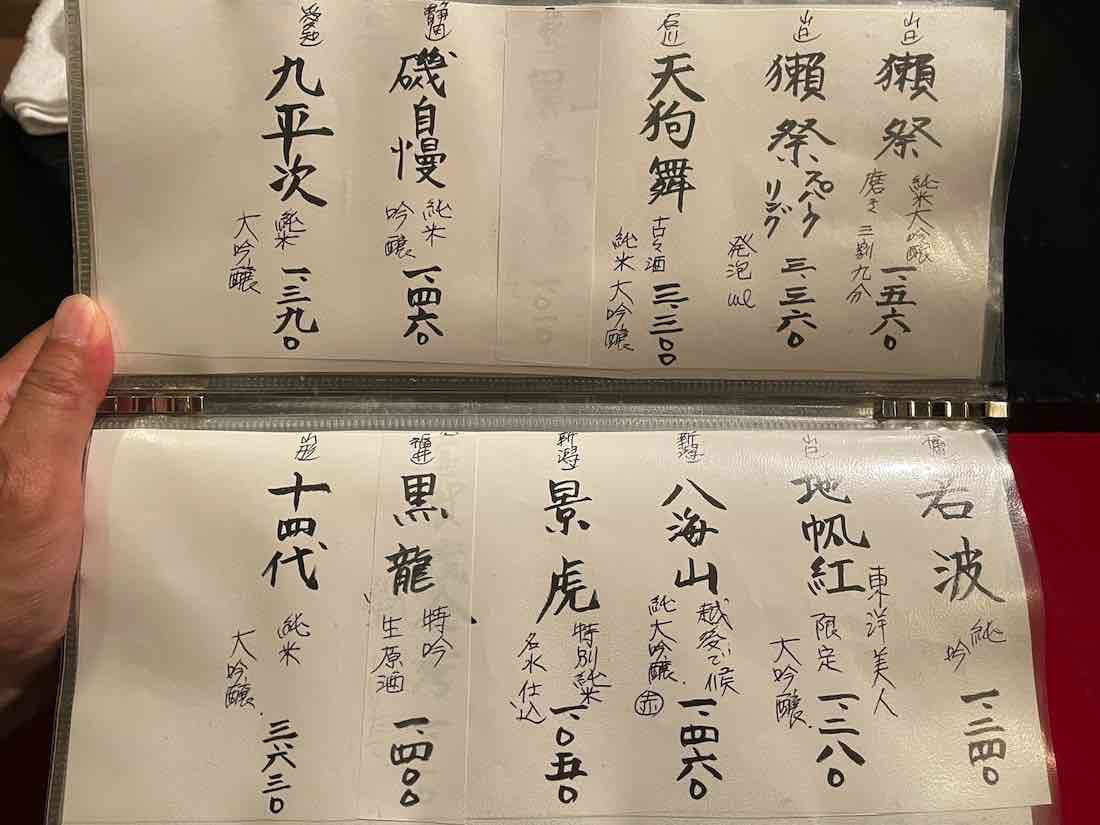 山口
獺祭
純米大吟醸
磨き三割九分
一、五六〇
山口
獺祭スパークリング
発泡
三、三六〇
石川
天狗舞
古々酒
純米大吟醸
三、三〇〇
静岡
磯自慢
純米
吟醸
一、四六〇
愛知
九平次
純米
大吟醸
一、三九〇
若波
純
吟
一、二四〇
山口
地帆紅
東洋美人
限定
大吟醸
一、二八〇
新潟
八海山
越後で候
純大吟醸
赤
一、四六〇
新潟
景虎
特別純米
名水仕込
一、〇五〇
福井
黒龍
特吟
生原酒
一、四〇〇
山形
十四代
純米
大吟醸
三六三〇